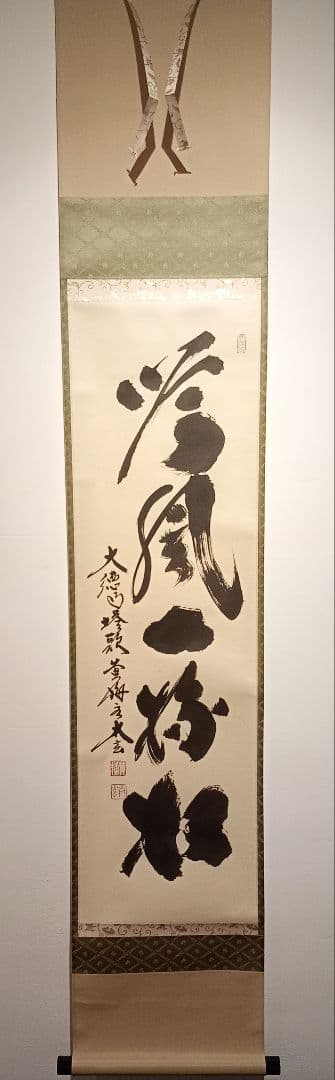 吟風一様松
大徳寺塔頭黄梅主太玄